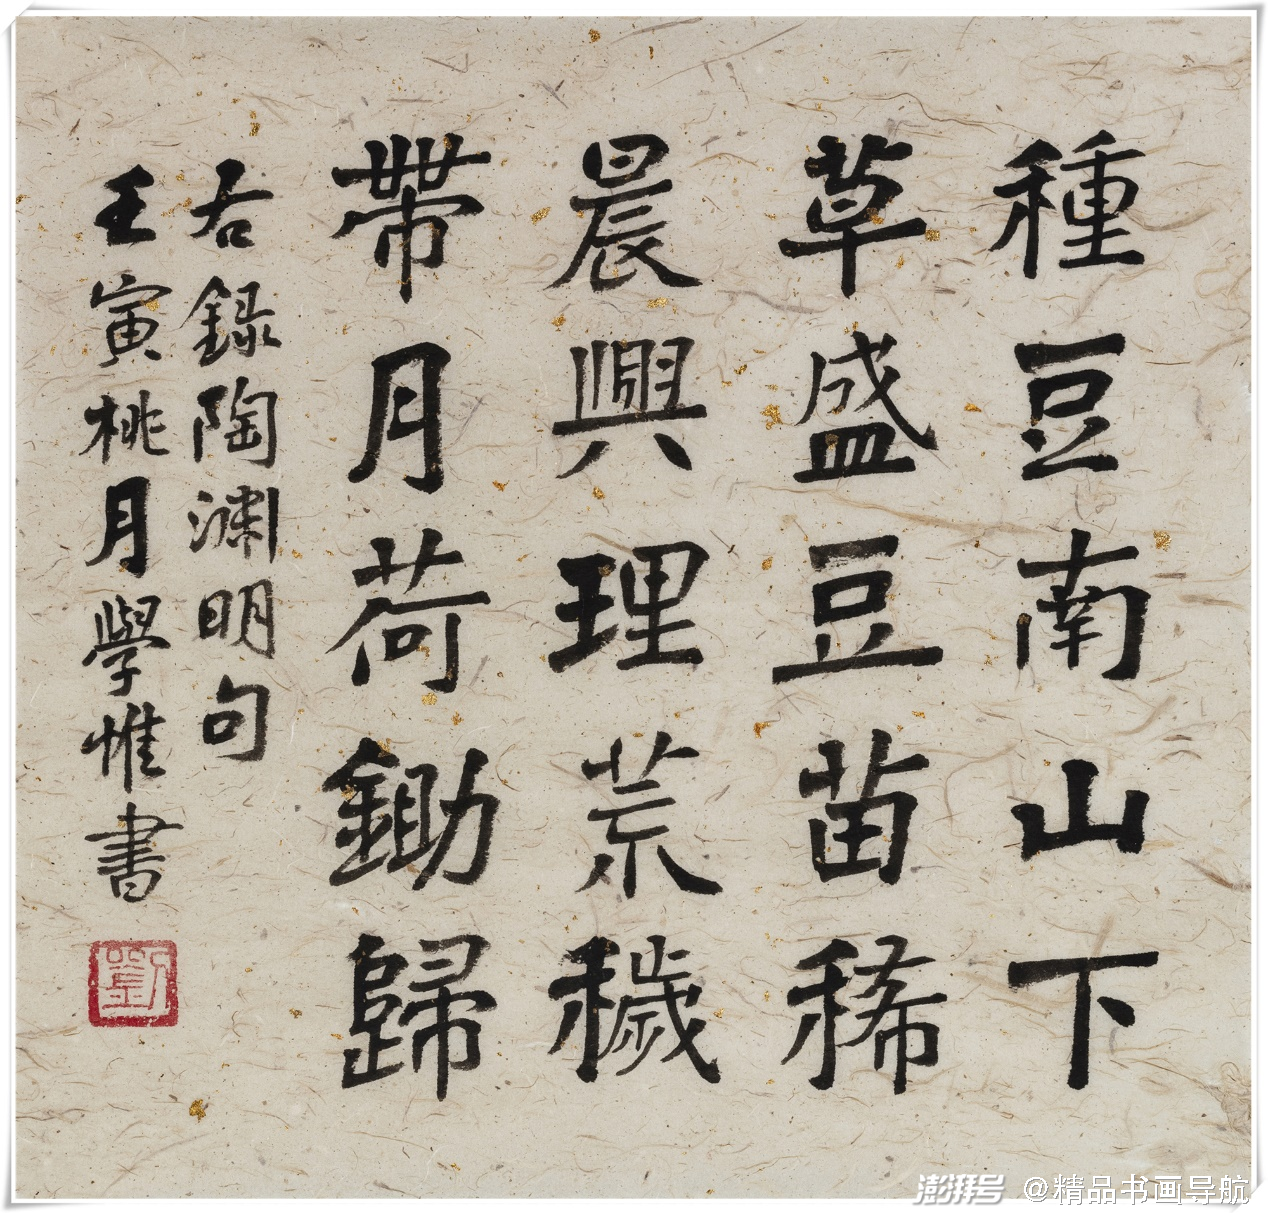 種豆南山下
草盛豆苗稀
晨興理荒穢
帶月荷鋤歸
右錄陶淵明句
壬寅桃月學惟書
劉
澎湃号 @精品书画导航